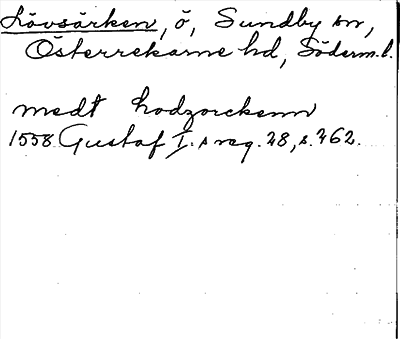 Lövsärken, ö, Sundby sn,
Österrekarne hd, Söderm.l.
medt hodzorckenn
1558 Gustaf I.s reg. 28, s. 762.